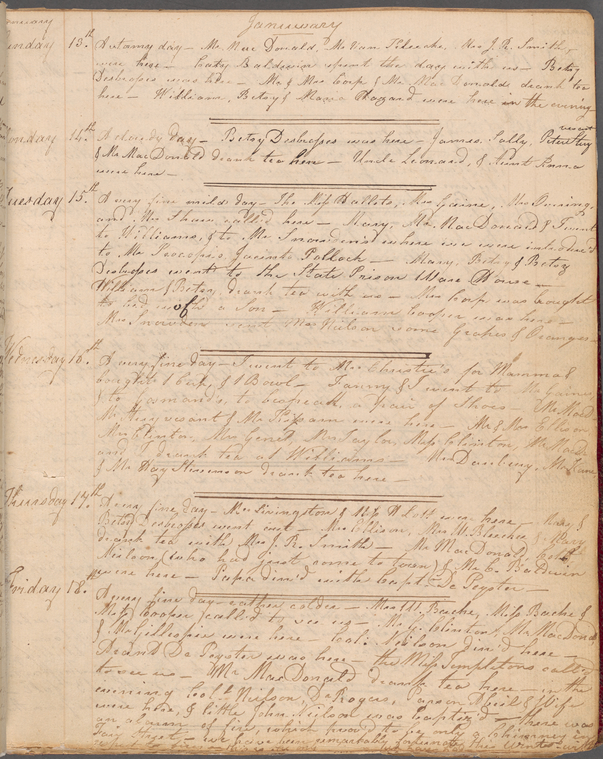 January
Sunday 13.th A stormy day — Mr. Mac Donald, Mr. Van Bleecke, Mrs. J. R. Smith,
were here — Caty Baldwin spent the day with us — Betsy
Desbrosses was here — Mr. & Mrs. Coop & Mr. Mac Donald, drank tea
here — William, Betsey & Maria Hazzard were here in the evening
Monday 14.th A cloudy day — Betsy Desbrosses was here — James, Sally, Peter Stuy
vesant
& Mr. MacDonald drank tea here — Uncle Leonard, & Aunt Anna
were here —
Tuesday 15.th A very fine mild day — The Miss Halletts, Mrs. Gaine,
and Mrs. Shaw, call'd here — Mary, Mr. MacDonald & I went
to Williams, & to Mr. Snowdens where we were introduced
to Mr. Pollock — Mary, Betsy & Betsy
Desbrosses went to the State Prison Ware House —
William & Betsy drank tea with us — Mrs. Coop was brought
to bed of a Son — William Cooper was here —
Mrs. Snowden sent Mrs. Neilson some Grapes & Oranges —
Wednesday 16.th A very fine day — I went to Mrs. Christie's for Mamma
bought 1 Cup, & 1 Bowl — Fanny & I went to Mr. Gaines
& to to bespeak, a pair of shoes — Mr. MacD
Mr. Stuyvesant & Mr. were here — Mr. & Mrs. Ellison
Mrs. Clinton, Mrs. Genet, Mrs. Taylor, Miss Clinton, Mr. MacD
and I drank tea at Williams — Mr.
& Mr. Hay Stevenson drank tea here —
Thursday 17.th A very fine day — Mrs. Livingston & Miss were here — Mary &
Betsy Desbrosses went out — Mrs. Ellison, Mrs. W. Bleecker & Mary
drank tea with Mrs. J. R. Smith — Mr. MacDonald, Col.
Neilson, (who had just come to town) & Mr. C. Baldwin
were here — Papa din'd with Capt. De Peyster —
Friday 18.th A very fine day — rather colder — Mrs. W. Bache, Miss Bache &
Miss Cooper, called to see us — Mr. G. Clinton, Mr. MacDonald
& Mr. Gillespie were here — Col. Neilson din'd here —
De Peyster was here — the Miss Templetons called
to see us — Mr. MacDonald drank tea here — in the
evening Col. Neilson, Parson & Wife
were here, & little John Neilson was baptis'd — there was
an alarm of fire, which prov'd to be only a Chimney in
Fair Street — we have been remarkably fortunate this winter with